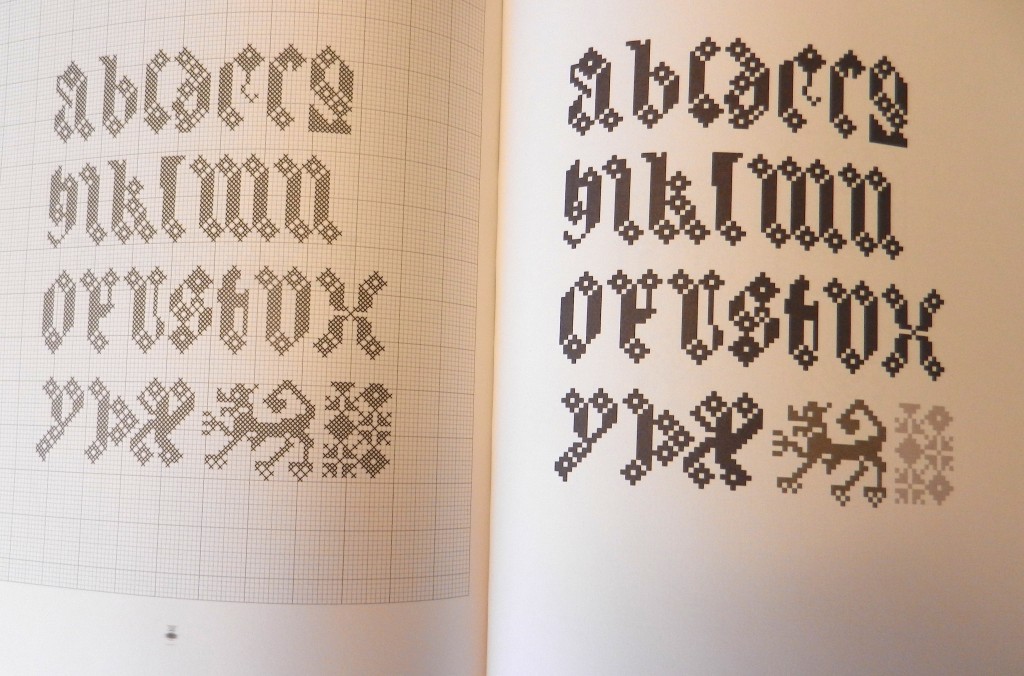 abcdefg
hiklmn
oprstvx
yþæ
abcdefg
hiklmn
oprstvx
yþæ